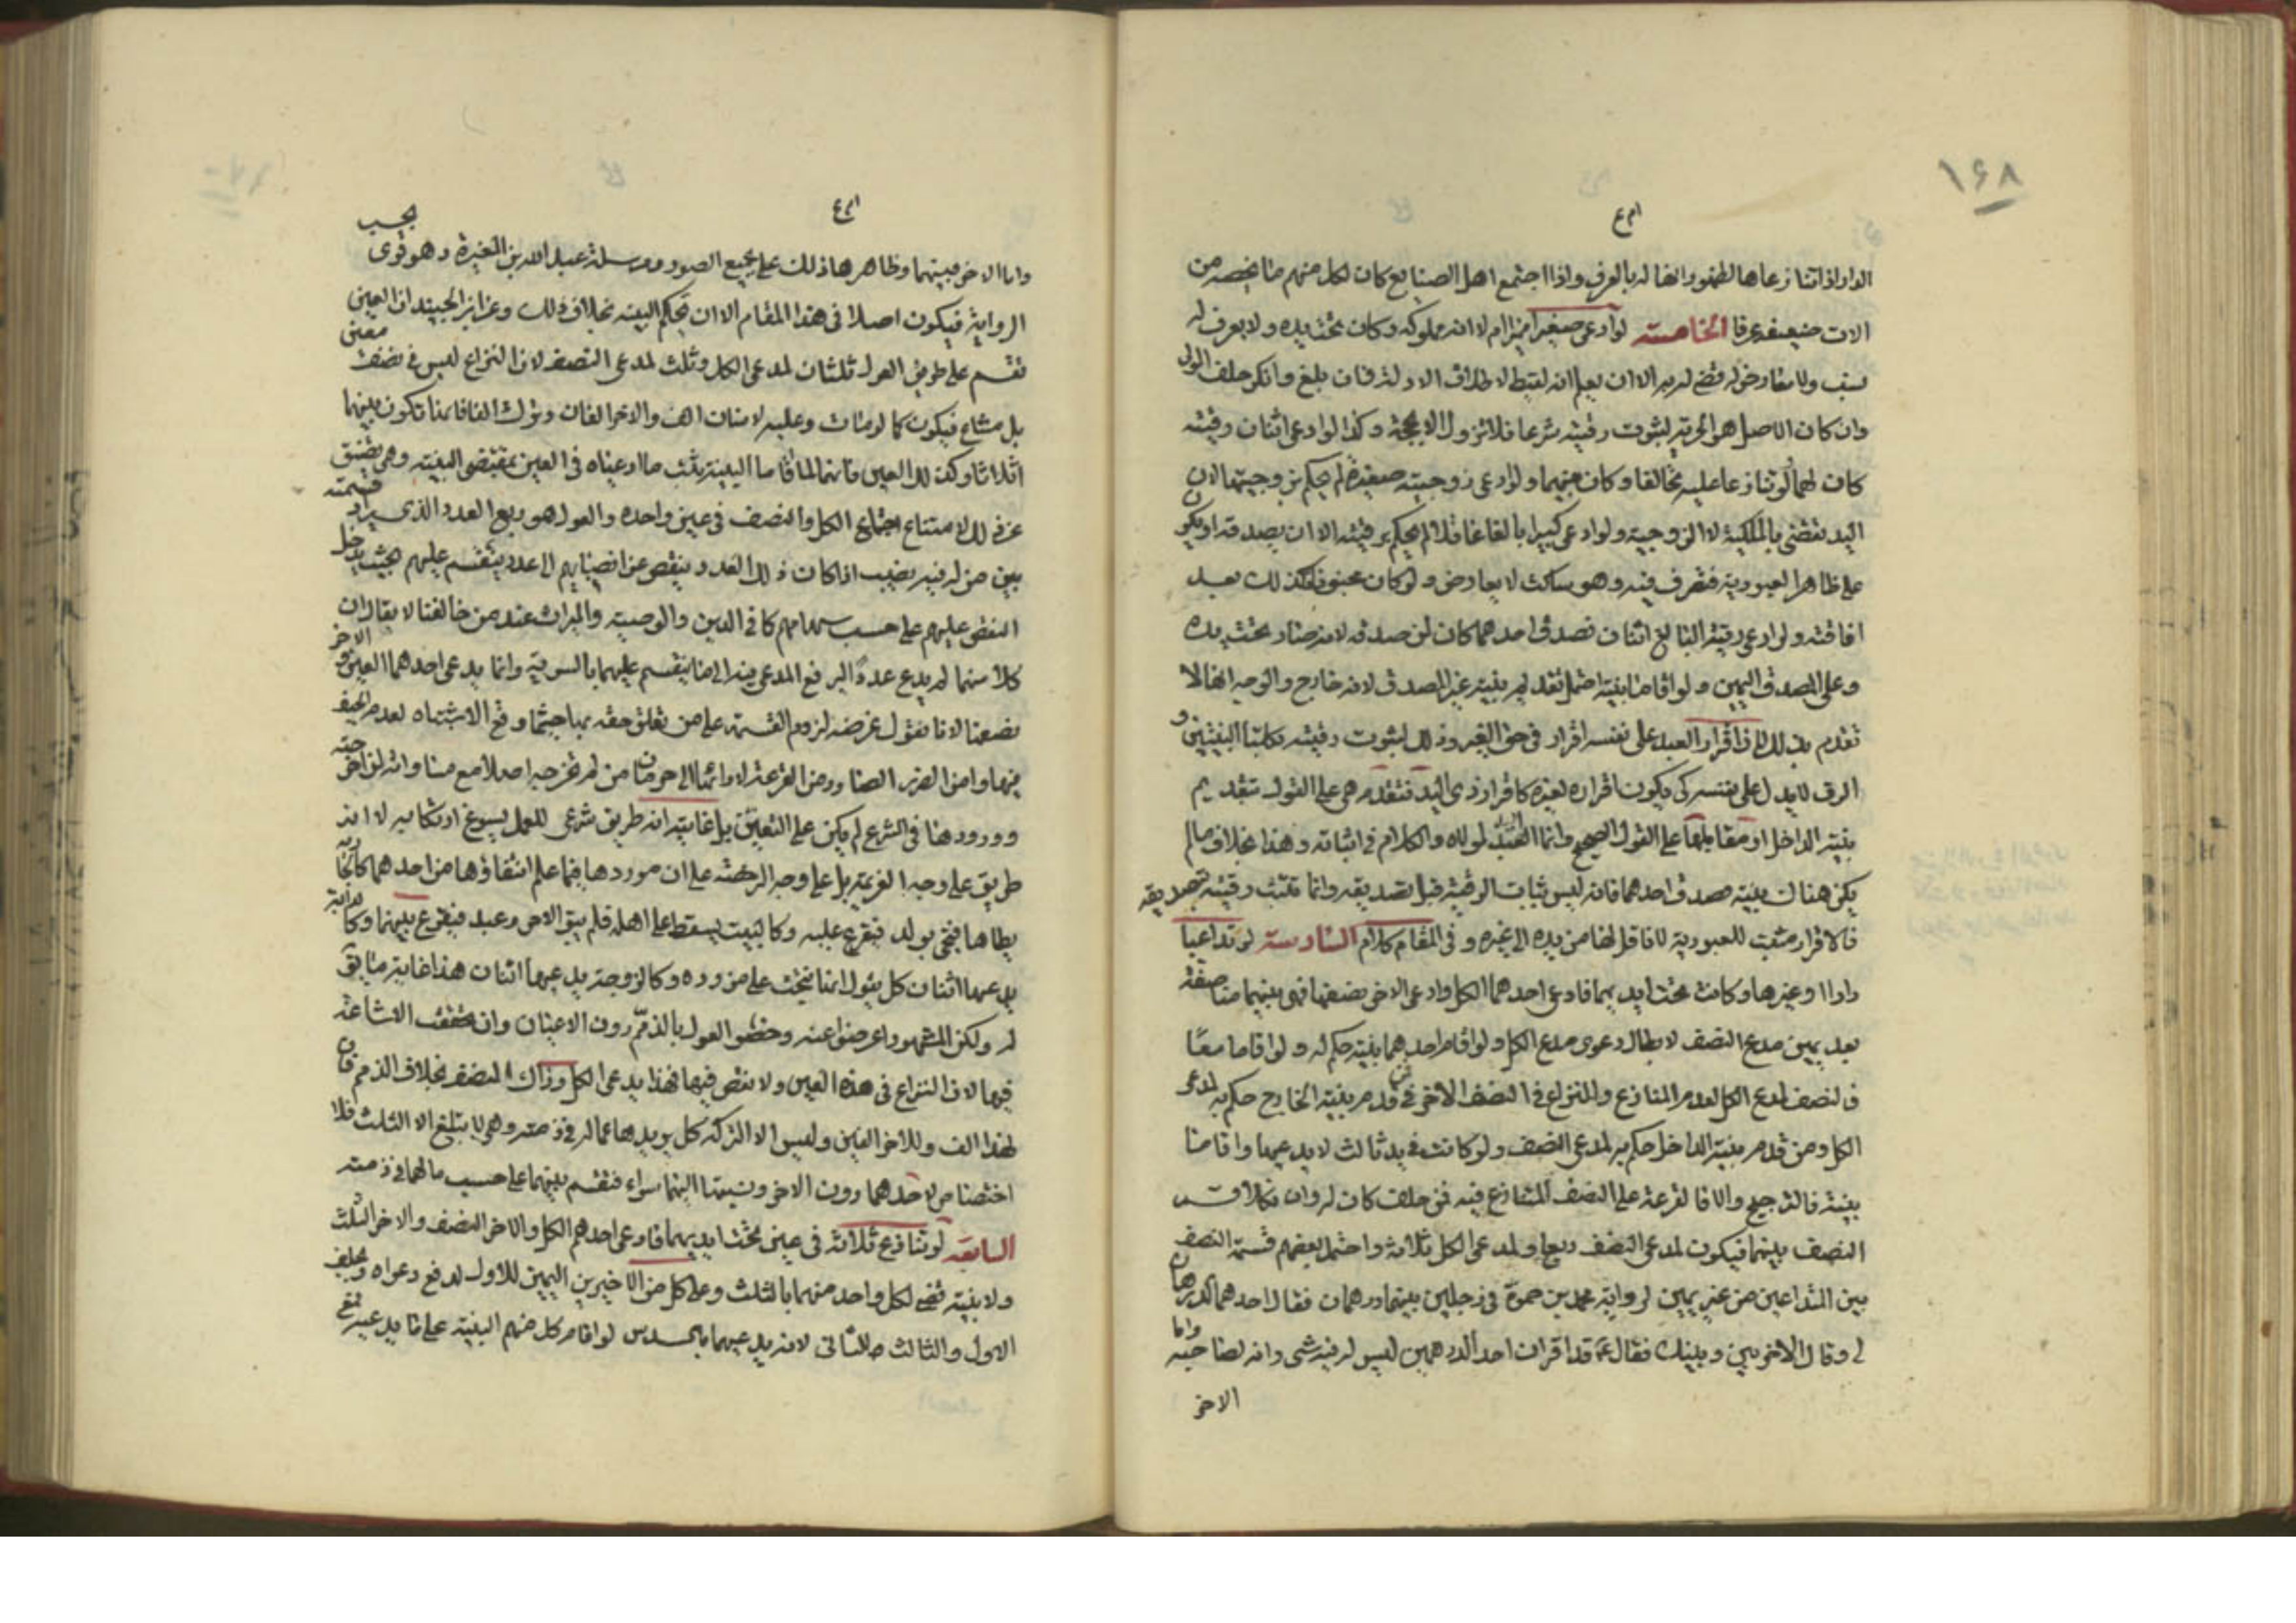 ١۶٨
الدار اذا تنازعاها لظهور انها له بالعرف واذا اجتمع اهل الصنايع كان لكل منهم ما يخصه من
الات صنيعته عرفا الخامسة لو ادعى صغيرا ميزا ام لا انه مملوكه وكان تحت يده ولا يعرف له
نسب ولا معارض له قضى له به الا ان يعلم انه لقيط لاطلاق الادلة فان بلغ وانكر حلف المولى
وان كان الاصل هو الحرية لثبوت رقيته شرعا فلا تزول الا بحجة وكذا لو ادعى اثنان رقيته
كان لهما لو تنازعا عليه تحالفا وكان بينهما ولو ادعى زوجية صغيرة لم يحكم بزوجيتها لان
اليد تقضى بالملكية لا الزوجية ولو ادعى كبيرا بالغا عاقلا لم يحكم برقيته الا ان يصدقه او يكون
على ظاهر العبودية فتصرف فيه وهو ساكت لا يعارض ولو كان مجنونا فكذلك بعد
افاقته ولو ادعى رقية البالغ اثنان فصدق احدهما كان لمن صدقه لانه صار تحت يده
وعلى المصدق اليمين ولو اقاما بينة احتمل تقديم بينة غير المصدق لانه خارج والوجه انها لا
تقدم بذلك لان اقرار العبد على نفسه اقرار في حق الغير وذلك لثبوت رقيته بكلتا البينتين و
الرق لا يد له على نفسه كى يكون اقراره لغيره كاقرار ذى اليد فتقدم هى على القول بتقديم
بينة الداخل او مقابلها على القول الصحيح وانما اليد لمولاه والكلام في اثباته وهذا بخلاف ما لم
يكن هناك بينة صدق احدهما فانه ليس ثبات الرقية قبل تصديقه وانما تثبت رقيته بتصديقه
فالاقرار مثبت للعبودية لا ناقل لها من يده الى غيره وفي المقام كلام السادسة لو تداعيا
دارا وغيرها وكانت تحت ايديهما فادعى احدهما الكل وادعى الاخر نصفها فهى بينهما مناصفة
بعد يمين مدع النصف لابطال دعوى مدع الكل ولو اقام احدهما بينة حكم له ولو اقاما معًا
فالنصف لمدع الكل لعدم المنازع والنزاع في النصف الاخر فمن قدم بينة الخارج حكم به لمدعى
الكل ومن قدم بينة الداخل حكم به لمدعى النصف ولو كانت في يد ثالث لا يدعيها واقاما
بينة فالترجيح والا فالقرعة على النصف المتنازع فيه فمن حلف كان له وان نكلا قسم
النصف بينهما فيكون لمدعى النصف ربعا ولمدعى الكل ثلاثة واحتمل بعضهم قسمة النصف
بين المتداعين من غير يمين لرواية محمد بن حمزة في رجلين بينهما درهمان فقال احدهما الدرهمان
لى وقال الاخر بينى وبينك فقال ع قد اقر ان احد الدرهمين ليس له فيه شى وانه لصاحبه واما
الاخر
واما الاخر فبينهما وظاهرها ذلك على جميع الصور ومرسلة عبد الله بن المغيرة وهو قوى يجب
الرواية فيكون اصلا في هذا المقام الا ان تحكم البينة بخلاف ذلك وعن ابن الجنيد ان العين
تقسم على طريق العول ثلثان لمدعى الكل وثلث لمدعى النصف لان النزاع ليس في نصف معين
بل مشاع فيكون كما لو مات وعليه لانسان الف والاخر الفان وترك الفا فانما تكون بينهما
اثلاثا وكذلك العين فانهما لما اقاما البينة ثبت ما ادعياه في العين بمقتضى البينة وهى تضيق
عن ذلك لامتناع اجتماع الكل والنصف في عين واحده والعول هو ربع العدد الذى يراد قسمته
بين من له فيه نصيب اذا كان ذلك العدد ينقص عن انصبائهم الى عدد ينقسم عليهم بحيث يدخل
النقص عليهم على حسب سهامهم كما في الدين والوصية والميراث عند من خالفنا لا يقال ان
كلا منهما لم يدع عددًا ليرفع المدعى فيه الى ما ينقسم عليهما بالسوية وانما يدعى احدهما العين والاخر
نصفها لانا نقول غرضه لزوم القسمة على من تعلق حقه بها حيثما وقع الاشتباه لعدم الحيف
فيها وامن الضرر الصادر من القرعة لادائها الى حرمان من لم تخرج له اصلا مع مساواته لمن اخرجته
وورودها في الشرع لم يكن على التعيين بل غايته انه طريق شرعى للعمل يسوغ ارتكابه لا انه
طريق على وجه العزيمة بل على وجه الرخصة على ان موردها فيما علم انتفاؤها من احدهما كالجارية
يطاها فتجى بولد فيقرع عليه وكالبيت يسقط على اهله فلم يبق الا حر وعبد فيقرع بينهما وكالدابة
يدعيها اثنان كل يقول انها نتجت على مزوده وكالزوجة يدعيها اثنان هذا غاية ما يق
له ولكن المشهور اعرضوا عنه وخصوا العول بالذمم دون الاعيان وان تحققت الاشاعة
فيها لان النزاع في هذه العين ولا نقص فيها فهذا يدعى الكل وذاك النصف بخلاف الذمم فان
لهذا الف وللاخر الفين وليس الا التركة كل يريدها عما له في ذمته وهى لا تبلغ الا الثلث فلا
اختصاص لاحدهما دون الاخر ونسبتها اليهما سواء فتقسم بينهما على حسب ما لهما في ذمته
السابعة لو تنازع ثلاثة في عين تحت ايديهم فادعى احدهم الكل والاخر النصف والاخر الثلث
ولا بينة قضى لكل واحد منهما بالثلث وعلى كل من الاخيرين اليمين للاول لدفع دعواه ويحلف
الاول والثالث للثانى لانه يدعيهما بالسدس لو اقام كل منهم البينة على ما يدعيه فمع